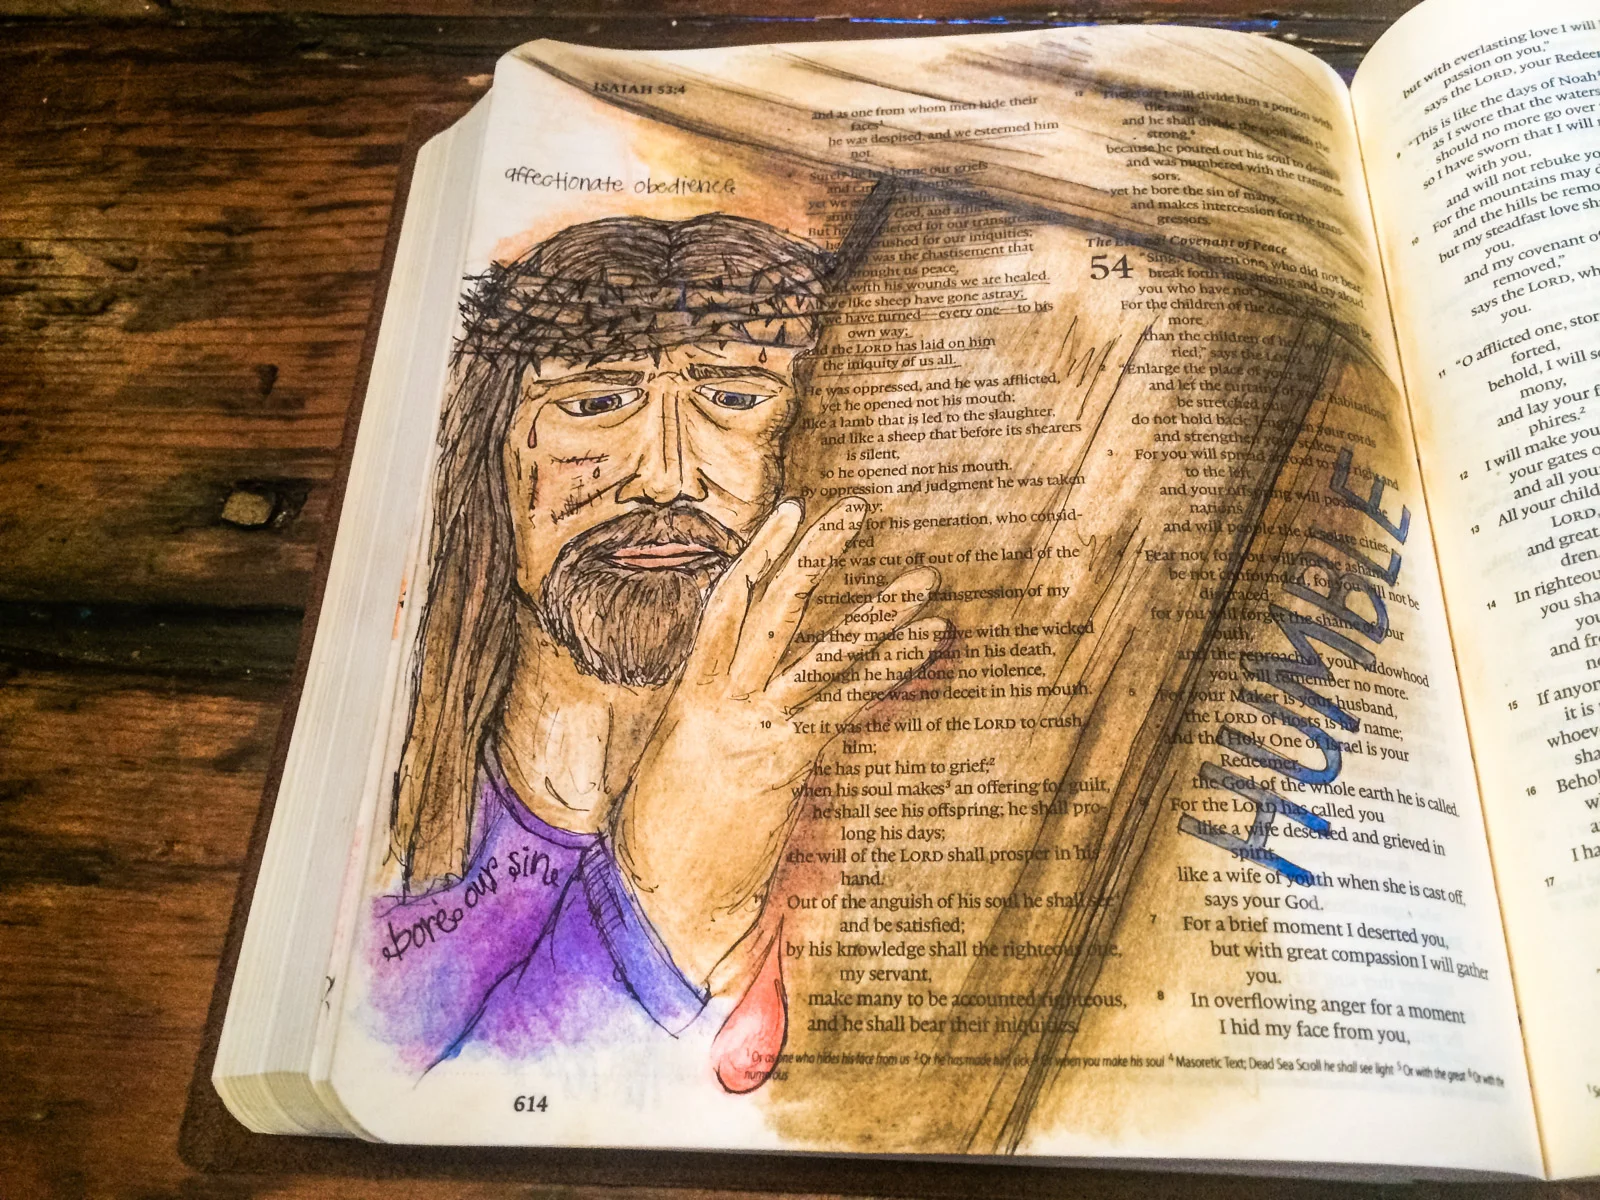 ISAIAH 53:4
affectionate obedience
bore our sin
614
and as one from whom men hide their
faces¹
he was despised, and we esteemed him
not.
Surely he has borne our griefs
and
yet we esteemed him
smitten by God, and afflicted.
But he was pierced for our transgressions;
he was crushed for our iniquities;
him was the chastisement that
brought us peace,
and with his wounds we are healed.
we like sheep have gone astray;
we have turned—every one—to his
own way;
and the LORD has laid on him
the iniquity of us all.
He was oppressed, and he was afflicted,
yet he opened not his mouth;
like a lamb that is led to the slaughter,
and like a sheep that before its shearers
is silent,
so he opened not his mouth.
By oppression and judgment he was taken
away;
and as for his generation, who consid-
ered
that he was cut off out of the land of the
living,
stricken for the transgression of my
people?
9 And they made his grave with the wicked
and with a rich man in his death,
although he had done no violence,
and there was no deceit in his mouth.
10 Yet it was the will of the LORD to crush
him;
he has put him to grief;²
when his soul makes³ an offering for guilt,
he shall see his offspring; he shall pro-
long his days;
the will of the LORD shall prosper in his
hand.
Out of the anguish of his soul he shall see
and be satisfied;
by his knowledge shall the righteous one,
my servant,
make many to be accounted righteous,
and he shall bear their iniquities.
12 Therefore I will divide him a portion with
the many,
and he shall divide the spoil with the
strong,
because he poured out his soul to death
and was numbered with the transgres-
sors;
yet he bore the sin of many,
and makes intercession for the trans-
gressors.
The Eternal Covenant of Peace
54 "Sing, O barren one, who did not bear;
break forth into singing and cry aloud,
you who have not been in labor!
For the children of the desolate one will be
more
than the children of her who is mar-
ried," says the LORD.
2 "Enlarge the place of your tent,
and let the curtains of your habitations
be stretched out;
do not hold back; lengthen your cords
and strengthen your stakes.
3 For you will spread abroad to the right and
to the left,
and your offspring will possess the
nations
and will people the desolate cities.
"Fear not, for you will not be ashamed;
be not confounded, for you will not be
disgraced;
for you will forget the shame of your
youth,
and the reproach of your widowhood
you will remember no more.
5 For your Maker is your husband,
the LORD of hosts is his name;
and the Holy One of Israel is your
Redeemer,
the God of the whole earth he is called.
6 For the LORD has called you
like a wife deserted and grieved in
spirit,
like a wife of youth when she is cast off,
says your God.
7 For a brief moment I deserted you,
but with great compassion I will gather
you.
8 In overflowing anger for a moment
I hid my face from you,
HUMBLE
¹ Or as one who hides his face from us ² Or he has made him sick ³ Or when you make his soul ⁴ Masoretic Text; Dead Sea Scroll he shall see light ⁵ Or with the great ⁶ Or with the
numerous
but with everlasting love I will
passion on you,"
says the LORD, your Redee
9 "This is like the days of Noah
as I swore that the waters
should no more go over
so I have sworn that I will
with you,
and will not rebuke yo
For the mountains may d
10 and the hills be remo
but my steadfast love sh
you,
and my covenant of
removed,"
says the LORD, wh
you.
11 "O afflicted one, stor
forted,
behold, I will se
mony,
and lay your f
phires.²
12 I will make you
your gates o
and all your
13 All your child
LORD,
and great
dren.
14 In righteou
you sha
you
and fr
15 If anyon
it is
whoev
sha
16 Behol
wi
a
I ha
17